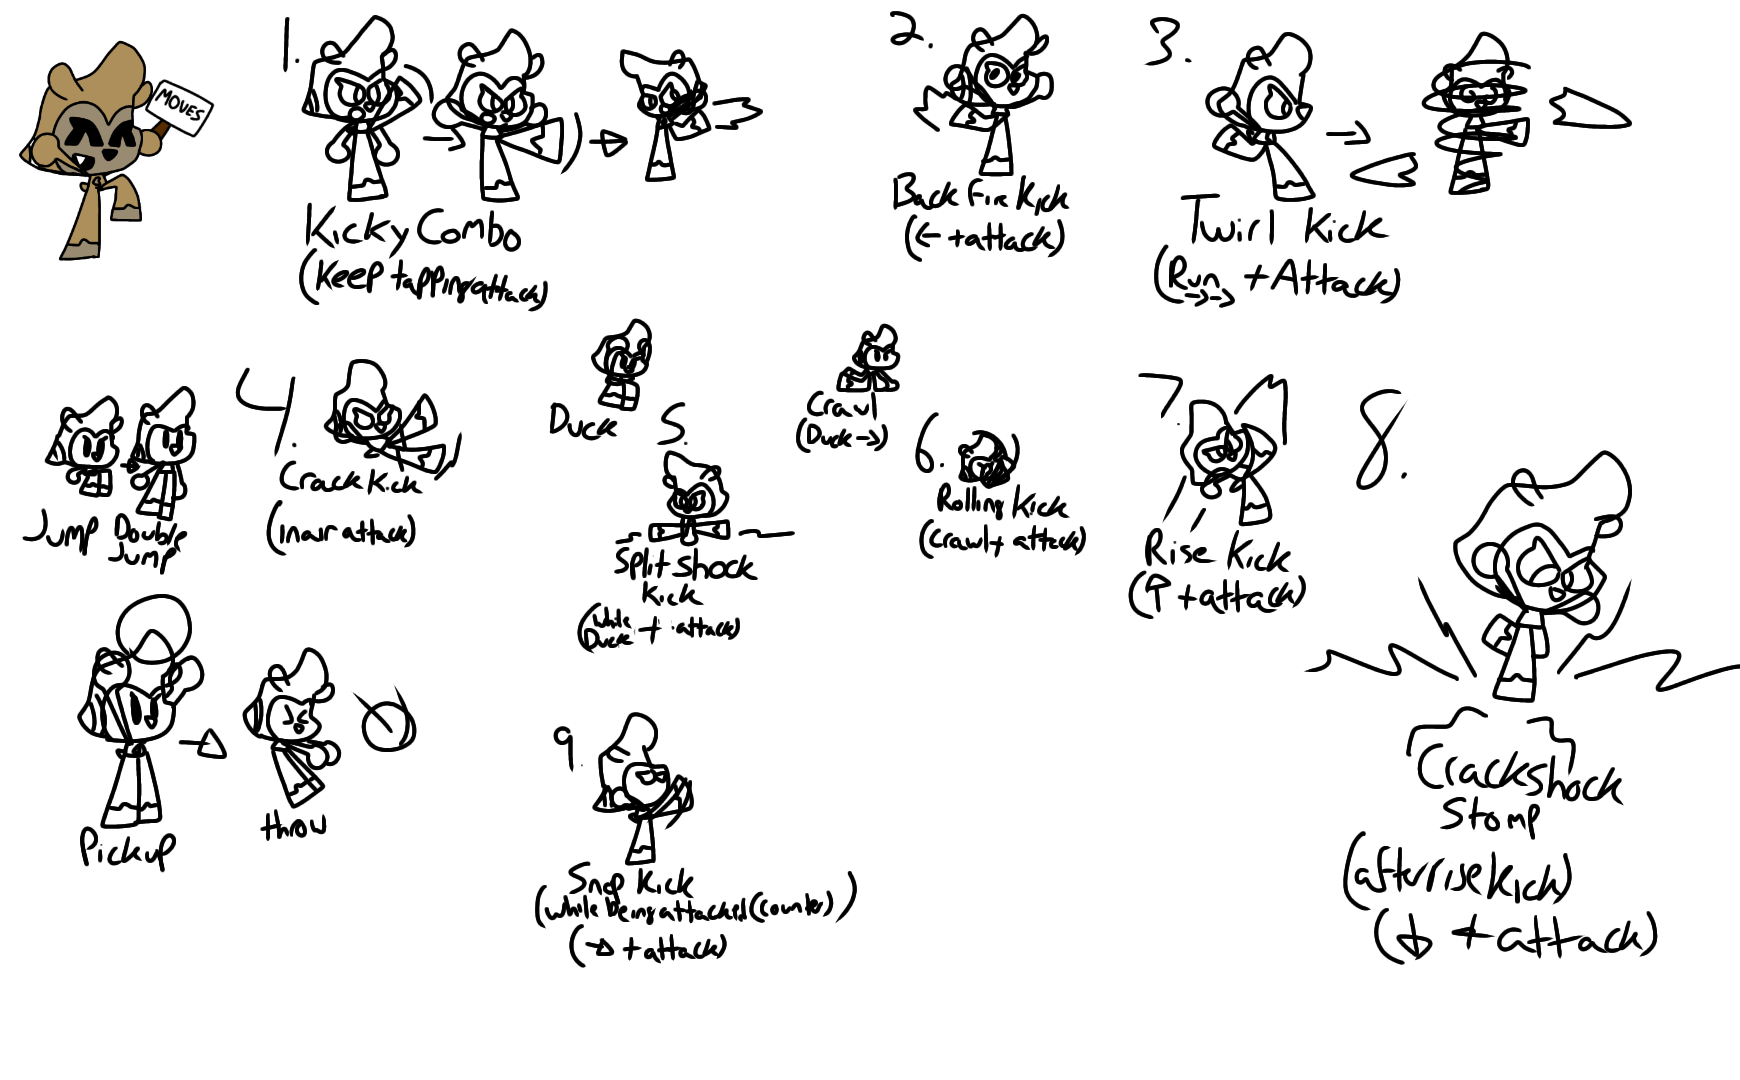 MOVES
1.
Kicky Combo
(Keep tapping attack)
2.
Back Fire Kick
(← + attack)
3.
Twirl Kick
(Run →→ + Attack)
Jump
Double
Jump
4.
Crack Kick
(in air attack)
Duck
5.
Split Shock
Kick
(while
Duck + attack)
Crawl
(Duck →)
6.
Rolling Kick
(crawl + attack)
7.
Rise Kick
(↑ + attack)
8.
Crackshock
Stomp
(after rise kick)
(↓ + attack)
Pickup
throw
9.
Snap Kick
(while being attacked (counter))
(→ + attack)